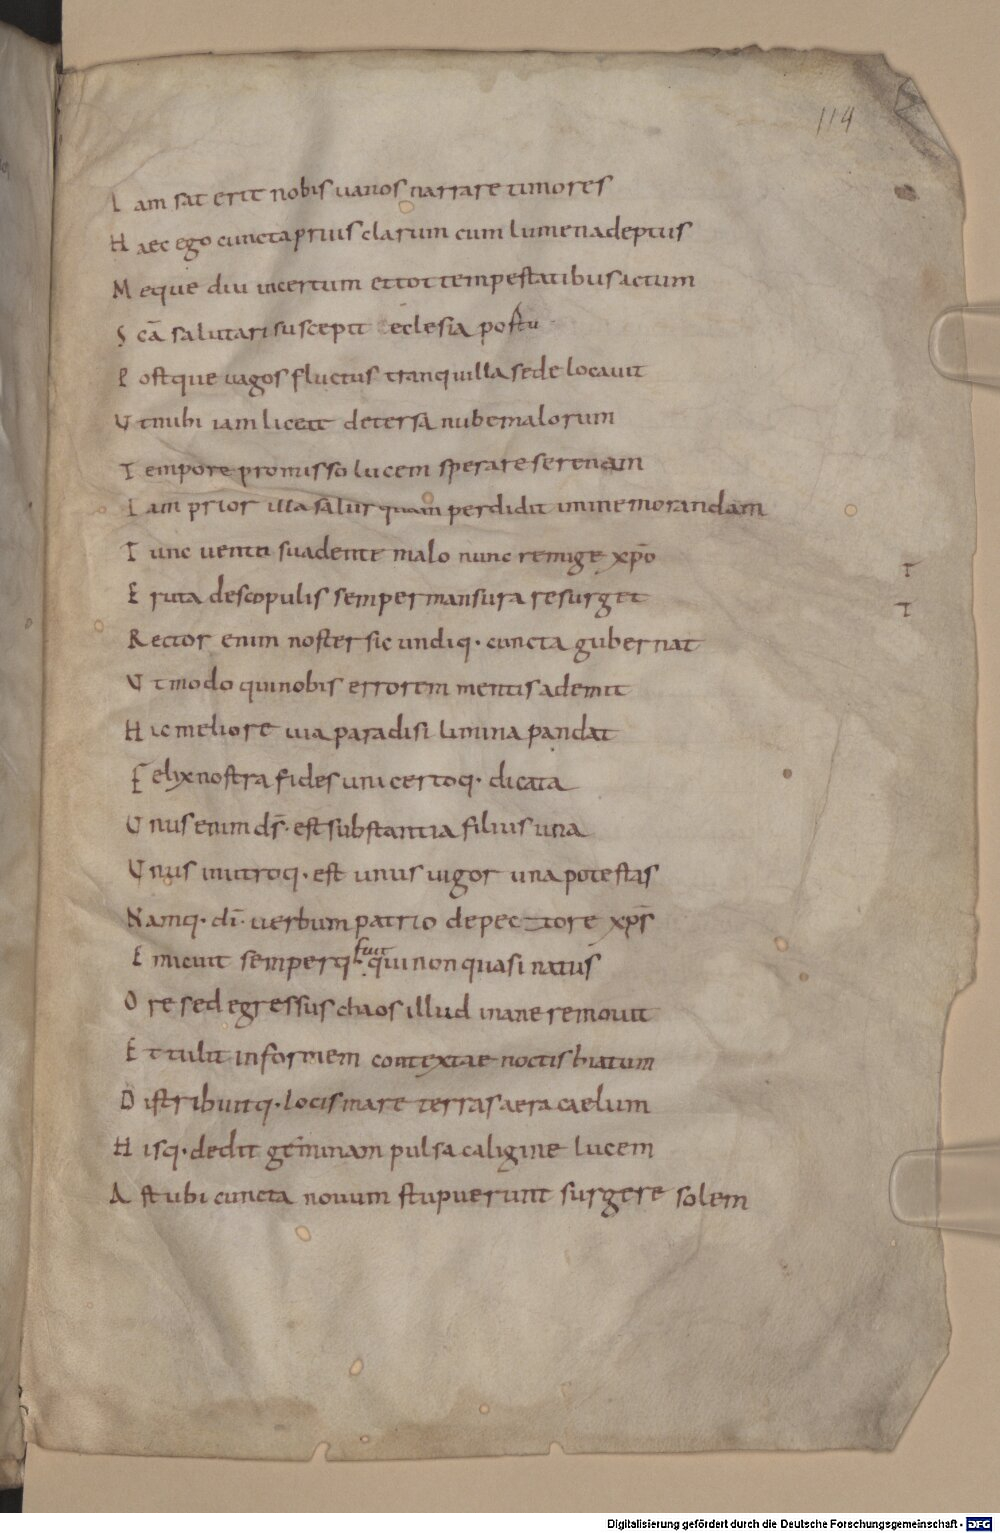 114
I am sat erit nobis uanos narrare timores
H aec ego cuncta prius clarum cum lumen adeptus
M eque diu incertum et tot tempestatibus actum
S cā salutari suscepit eclesia postu
P ostque uagos fluctus tranquilla sede locauit
U t mihi iam liceat detersa nube malorum
T empore promisso lucem sperare serenam
I am prior illa salus quam perdidit immemor andam
T unc uento suadente malo nunc remige xp̄o
E ruta de scopulis semper mansura resurget
R ector enim noster sic undiq· cuncta gubernat
U t modo qui nobis errorem mentis ademit
H ic meliore uia paradisi limina pandat
F elix nostra fides uni certoq· dicata
U nus enim ds̄· est substantia filius una
U nus in utroq· est unus uigor una potestas
N amq· dī· uerbum patrio de pectore xp̄s
E micuit semperq· fuit qui non quasi natus
O re sed egressus chaos illud inane remouit
E t tulit informem contextae noctis hiatum
D istribuitq· locis mare terras aera caelum
H isq· dedit geminam pulsa caligine lucem
A st ubi cuncta nouum stupuerunt surgere solem
T
T
Digitalisierung gefördert durch die Deutsche Forschungsgemeinschaft - DFG